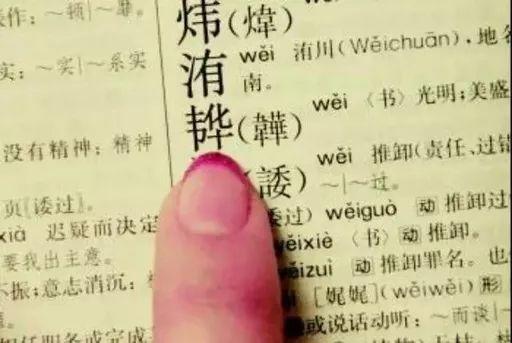 作：～顿|～靡。
实：～实|～系实
没有精神：精神
页〖诿过〗
xià 迟疑而决定
要我出主意。
不振；意志消沉：
任职务或完成
炜(煒)
洧 wěi 洧川(Wěichuān)，地名
南。
(韡) wěi 〈书〉光明；美盛
(諉) wěi 推卸(责任、过错
～|～过。
委过) wěiguò 动 推卸过
wěixiè 〈书〉动 推卸。
wěizuì 动 推卸罪名。也
[娓娓](wěiwěi) 形
或说话动听：～而谈|～